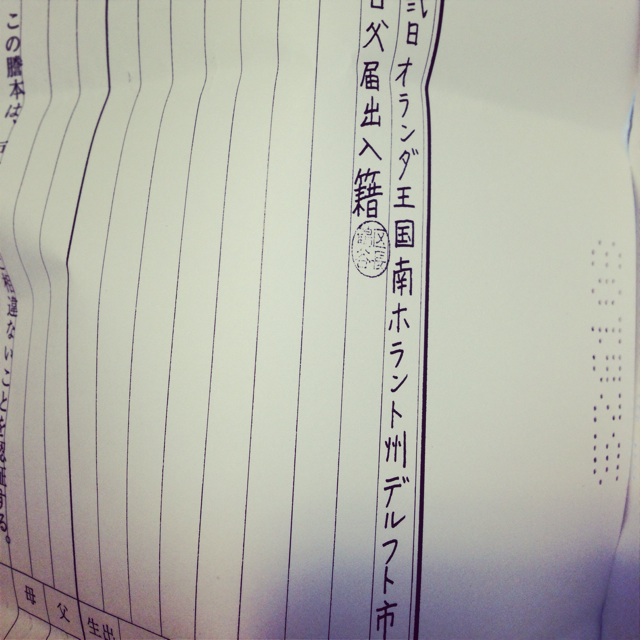 弐日オランダ王国南ホラント州デルフト市
日父届出入籍
生出
父
母
この謄本は、
相違ないことを認証する。